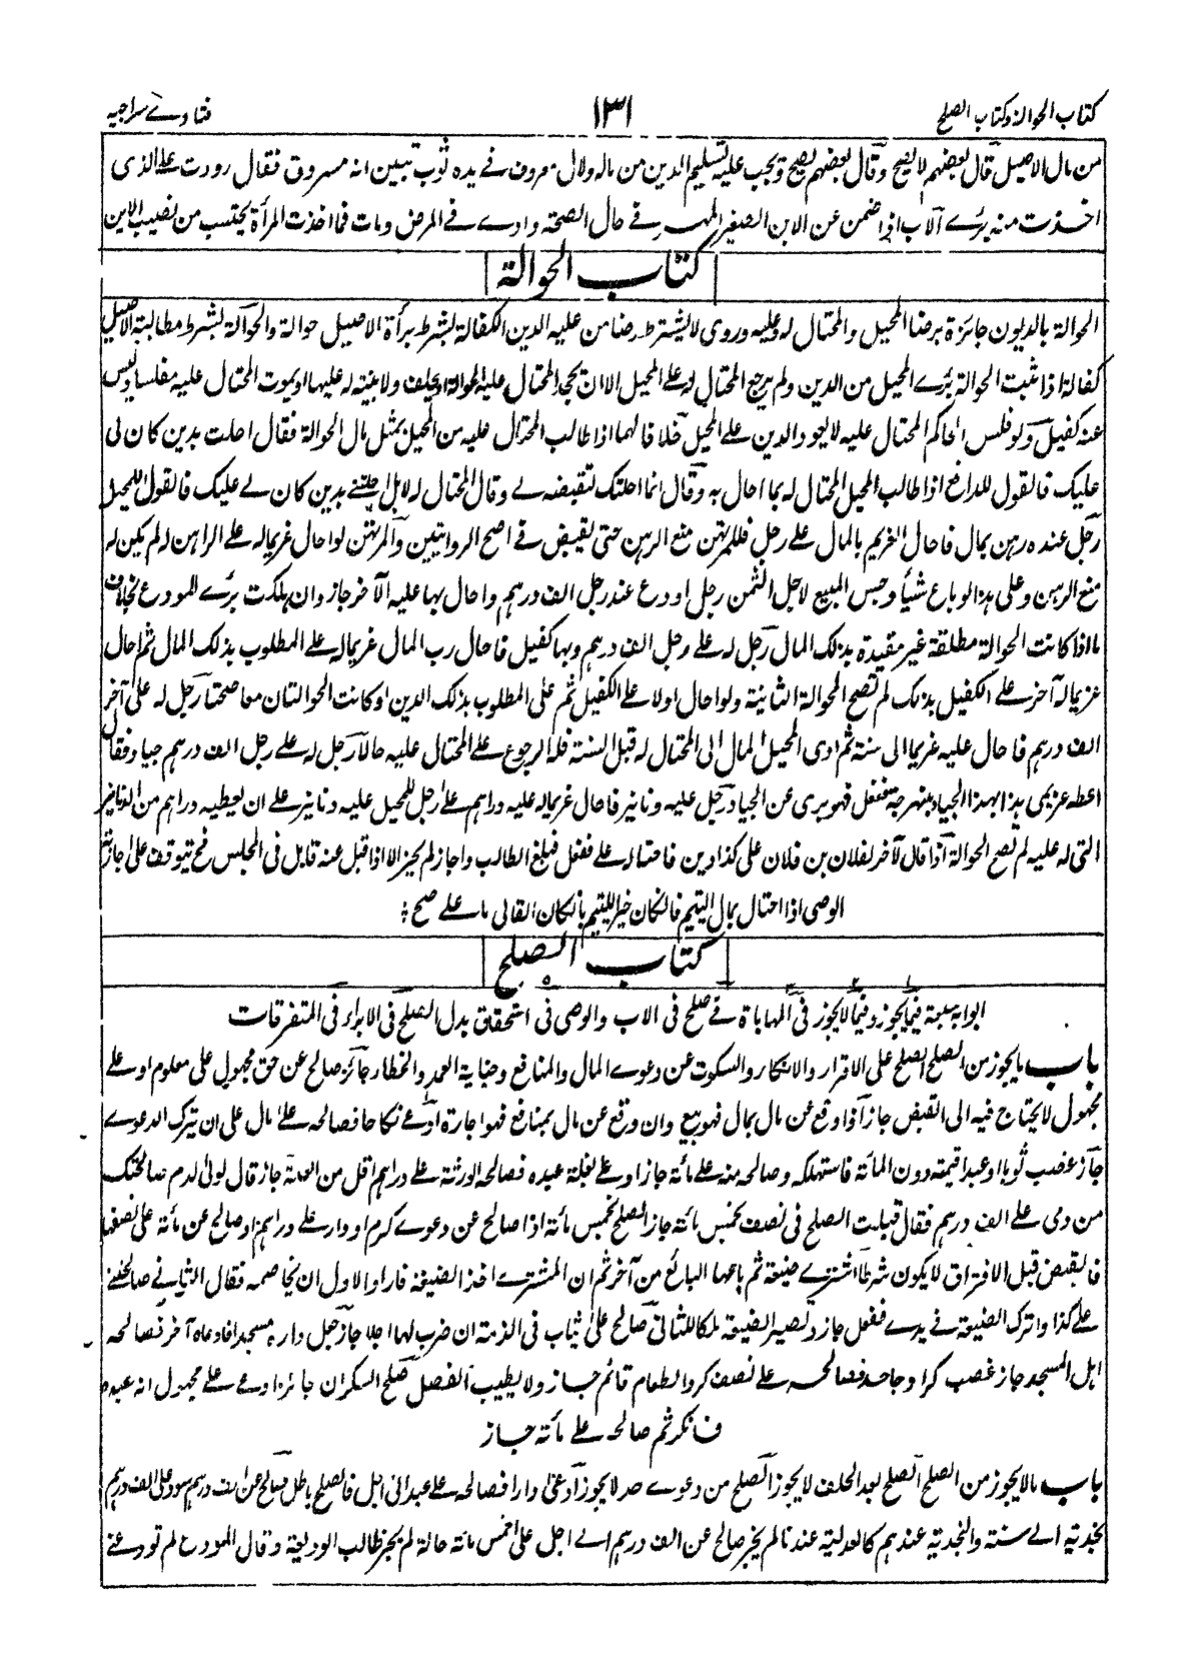 كتاب الحوالة وكتاب الصلح
١٣١
فتاوے سراجیہ
من مال الاصيل قال بعضهم لا يصح وقال بعضهم يصح ويجب عليه تسليم الدين من ماله دلال معروف فے يده ثوب تبين انه مسروق فقال رددت علے الذى
اخذت منه برئ الاب اذا ضمن عن الابن الصغير المهر فے حال الصحة وادے فے المرض ومات فما اخذت المرأة يحتسب من نصيب الابن
كتاب الحوالة
الحوالة بالديون جائزة برضا المحيل والمحتال له وعليه وروى لا يشترط رضا من عليه الدين الكفالة بشرط برأة الاصيل حوالة والحوالة بشرط مطالبة الاصيل
كفالة اذا تمت الحوالة برئ المحيل من الدين ولم يرجع المحتال له على المحيل الا ان يجحد المحتال عليه الحوالة ويحلف ولا بينة له عليها او يموت المحتال عليه مفلسا وليس
عنه كفيل ولو فلس الحاكم المحتال عليه لا يعود الدين علے المحيل خلافا لهما اذا طالب المحتال عليه من المحيل بمثل مال الحوالة فقال احلت بدين كان لى
عليك فالقول للدافع اذا طالب المحيل المحتال له بما احال به وقال انما احلتك لتقبضه لے وقال المحتال له لا بل احلتنے بدين كان لے عليك فالقول للمحيل
رجل عنده رهن بمال فاحال الغريم بالمال علے رجل فللمرتهن منع الرهن حتى يقبض فے اصح الروايتين والمرتهن لو احال غريما له علے الراهن له لم يكن له
منع الرهن وعلى هذا لو باع شيأ وحبس المبيع لاجل الثمن رجل اودع عند رجل الف درهم واحال بها عليه الآخر جاز وان هلكت برئ المودع بخلاف
ما اذا كانت الحوالة مطلقة غير مقيدة بذلك المال رجل له علے رجل الف درهم وبها كفيل فاحال رب المال غريما له علے المطلوب بذلك المال ثم احال
غريما له آخر علے الكفيل بذلك لم تصح الحوالة الثانية ولو احال اولا علے الكفيل ثم على المطلوب بذلك الدين او كانت الحوالتان معا صحتا رجل له على آخر
الف درهم فاحال عليه غريما الى سنة ثم ادى المحيل المال الى المحتال له قبل السنة فله الرجوع علے المحتال عليه حالا رجل له علے رجل الف درهم جياد فقال
اعطه غريمى هذا بهذا الجياد بنهرجة ففعل فهو برى عن الجياد رجل عليه دنانير فاحال غريما له عليه دراهم علے رجل للمحيل عليه دنانير علے ان يعطيه دراهم من الدنانير
التى له عليه لم تصح الحوالة اذا قال لآخر لفلان بن فلان على كذا دين فاحتاله علے ففعل فبلغ الطالب واجاز لم يجز الا اذا قبل عنه قابل فى المجلس فح يتوقف على اجازته
الوصى اذا احتال بمال اليتيم فان كان خيرا لليتيم بان كان الثانى املے صح
كتاب الصلح
ابوابه سبعة فيما يجوز وفيما لا يجوز فى المهاياة فے صلح فى الاب والوصى فى استحقاق بدل الصلح فى الابراء فى المتفرقات
باب ما يجوز من الصلح الصلح على الاقرار والانكار والسكوت عن دعوے المال والمنافع وجناية العمد والخطاء جائز صالح عن حق مجهول على معلوم او علے
مجهول لا يحتاج فيه الى القبض جاز اذا وقع عن مال بمال فهو بيع وان وقع عن مال بمنافع فهو اجارة ادعے نكاحا فصالحه علے مال على ان يترك الدعوے
جاز غصب ثوبا او عبدا قيمته دون المائة فاستهلكه وصالحه منه علے مائة جاز اوصے بغلة عبده فصالحه الورثة علے دراهم اقل من الغلة جاز قال لولى الدم صالحتك
من دمى علے الف درهم فقال قبلت الصلح فى نصف بخمس مائة جاز الصلح بخمس مائة اذا صالح عن دعوے كرم او دار علے دراهم او صالح عن مائة على نصفها
فالقبض قبل الافتراق لا يكون شرطا اشترے ضيعة ثم باعها البائع من آخر ثم ان المشترے اخذ الضيعة فاراد الاول ان يخاصمه فقال الثانے صالحنے
علے كذا واترك الضيعة فے يدے ففعل جاز وتصير الضيعة ملكا للثانى صالح علے ثياب فى الذمة ان ضرب لها اجلا جاز جعل داره مسجدا فادعاه آخر فصالحه
اهل المسجد جاز غصب كرا وجاحد فصالحه علے نصف كر والطعام قائم جاز ولا يطيب الفضل صلح السكران جائز ادعے علے مجهول انه عبده
فانكر ثم صالحه علے مائة جاز
باب ما لا يجوز من الصلح الصلح بعد الحلف لا يجوز الصلح من دعوے حد لا يجوز ادعى دارا فصالحه علے عبد الى اجل فالصلح باطل صالح عن الف درهم سود على الف درهم
نجدية الے سنة والنجدية عندهم كالعدلية عندنا لم يجز صالح عن الف درهم الے اجل على خمس مائة حالة لم يجز طالب الوديعة وقال المودع لم تودعنے